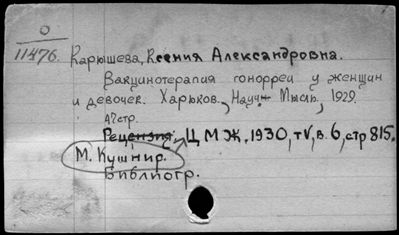 0
11476. Карюшева, Ксения Александровна.
Вакцинотерапия гонорреи у женщин
и девочек. Харьков, Науч. Мысль, 1929.
47стр.
Рецензия: Ц М Ж, 1930, т V, в. 6, стр 815.
М. Кушнир.
Библиогр.